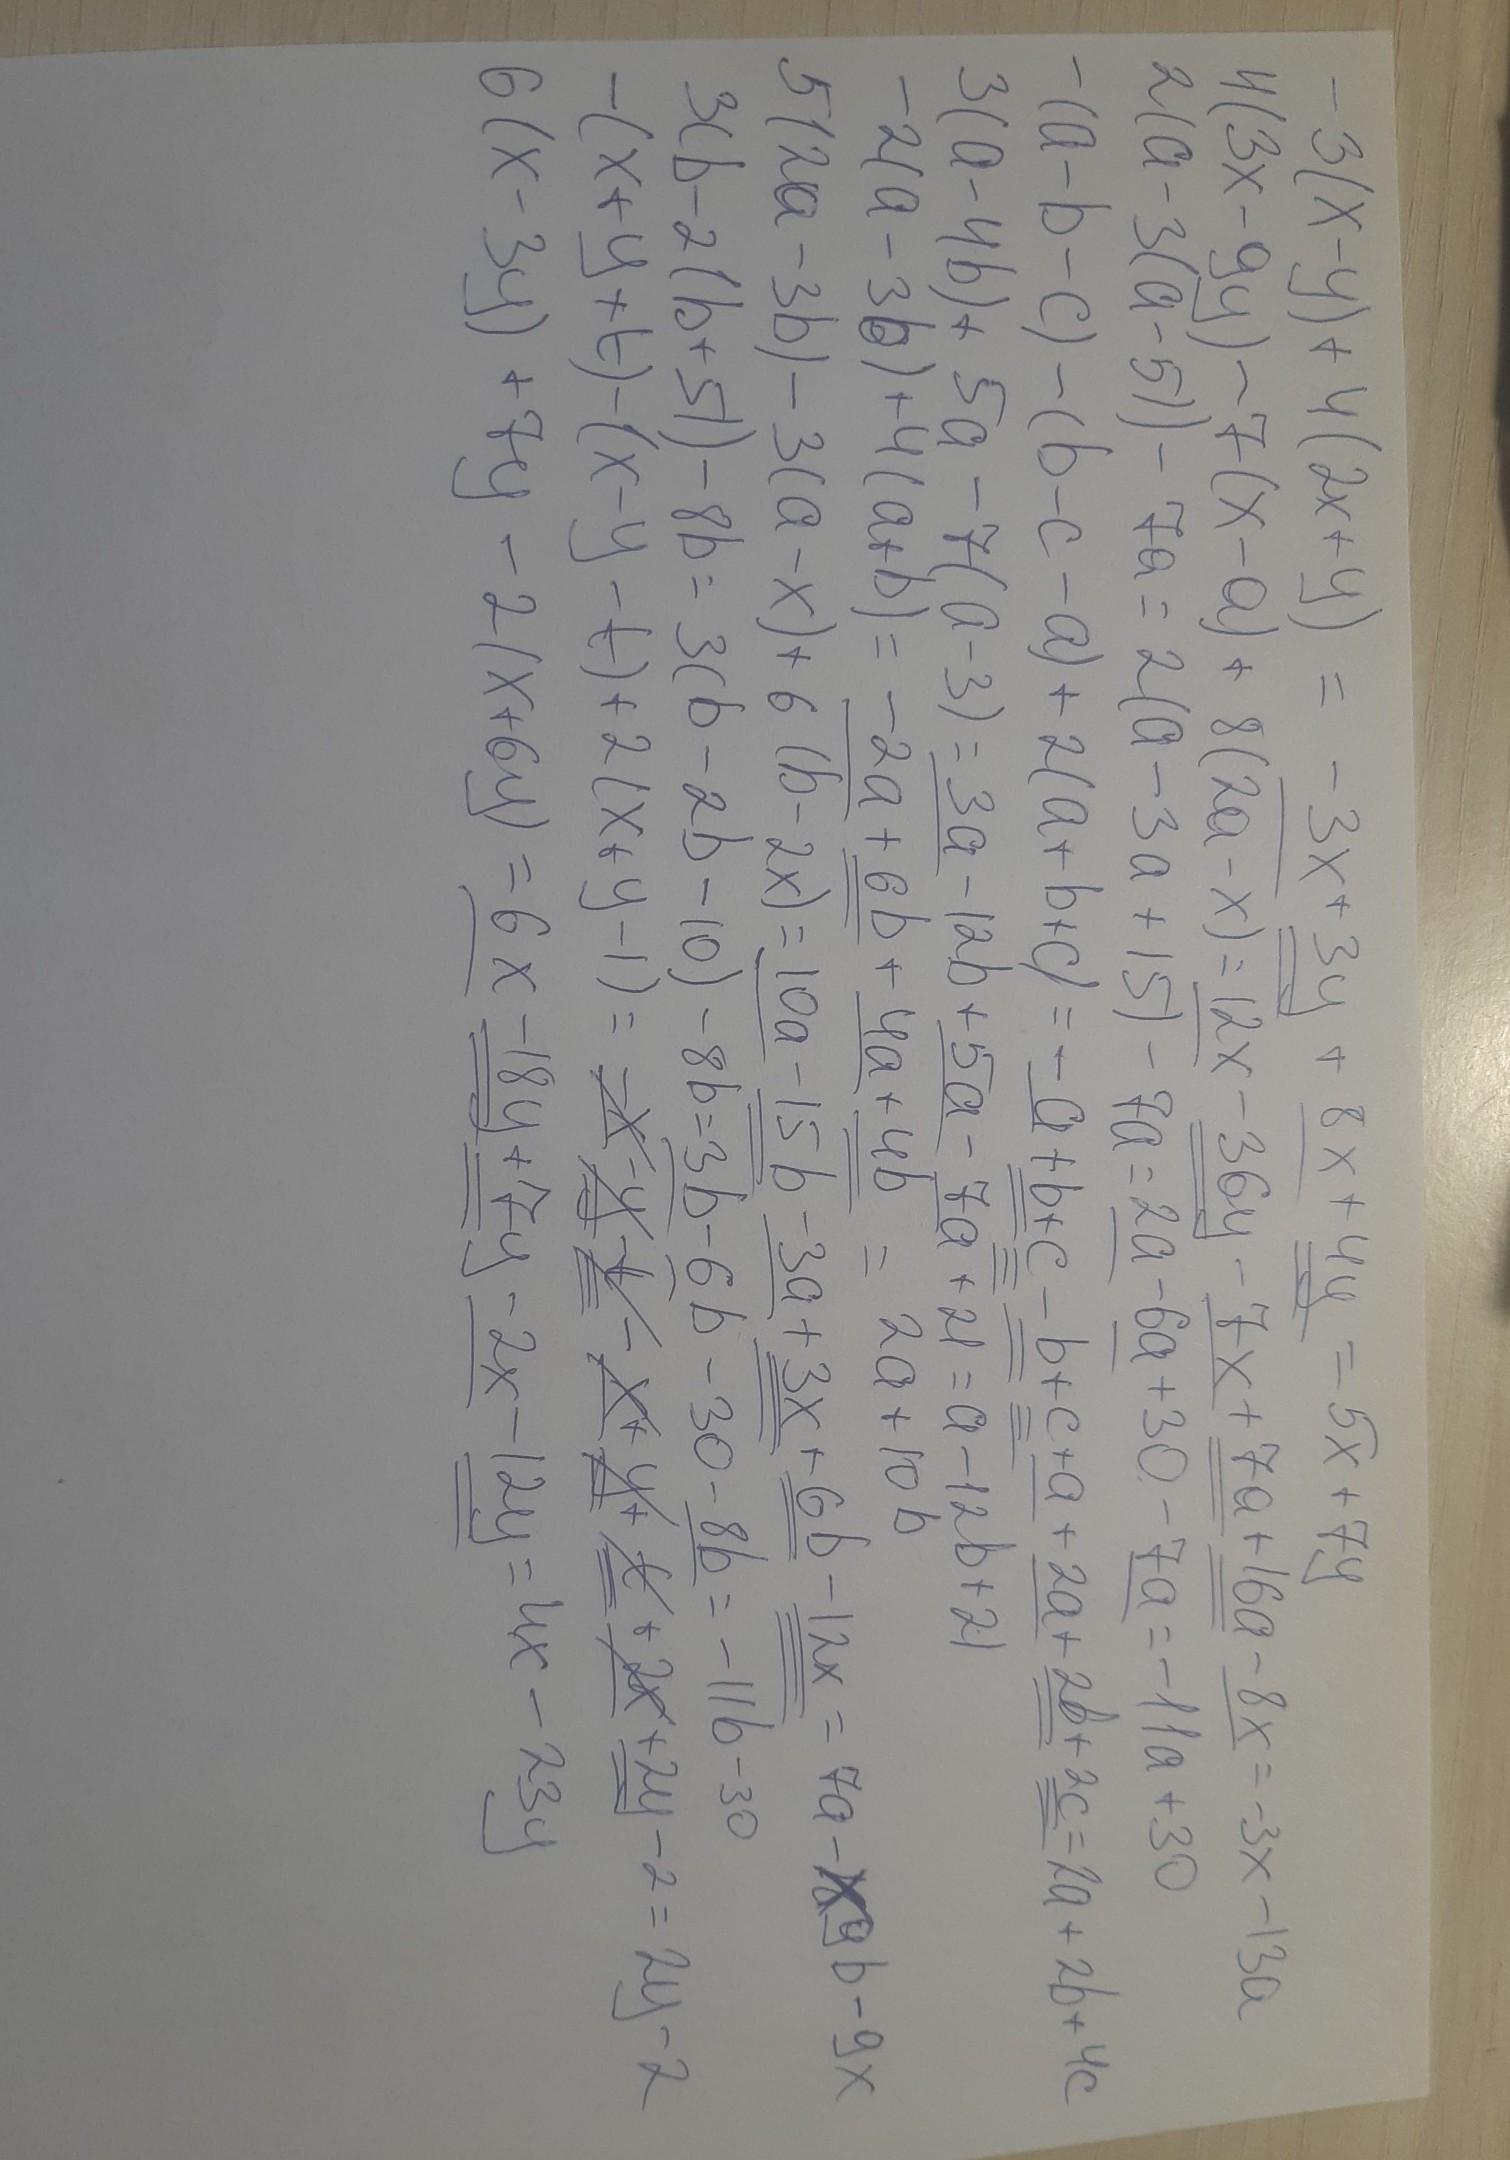 -3(x-y)+4(2x+y) = -3x+3y+8x+4y=5x+7y
4(3x-9y)-7(x-a)+8(2a-x)=12x-36y-7x+7a+16a-8x=-3x-13a
2(a-3(a-5))-7a=2(a-3a+15)-7a=2a-6a+30-7a=-11a+30
-(a-b-c)-(b-c-a)+2(a+b+c)=-a+b+c-b+c+a+2a+2b+2c=2a+2b+4c
3(a-4b)+5a-7(a-3)=3a-12b+5a-7a+21=a-12b+21
-2(a-3b)+4(a+b)=-2a+6b+4a+4b = 2a+10b
5(2a-3b)-3(a-x)+6(b-2x)=10a-15b-3a+3x+6b-12x=7a-9b-9x
3(b-2(b+5))-8b=3(b-2b-10)-8b=3b-6b-30-8b=-11b-30
-(x+y+t)-(x-y-t)+2(x+y-1)=-x-y-t-x+y+t+2x+2y-2=2y-2
6(x-3y)+7y-2(x+6y)=6x-18y+7y-2x-12y=4x-23y